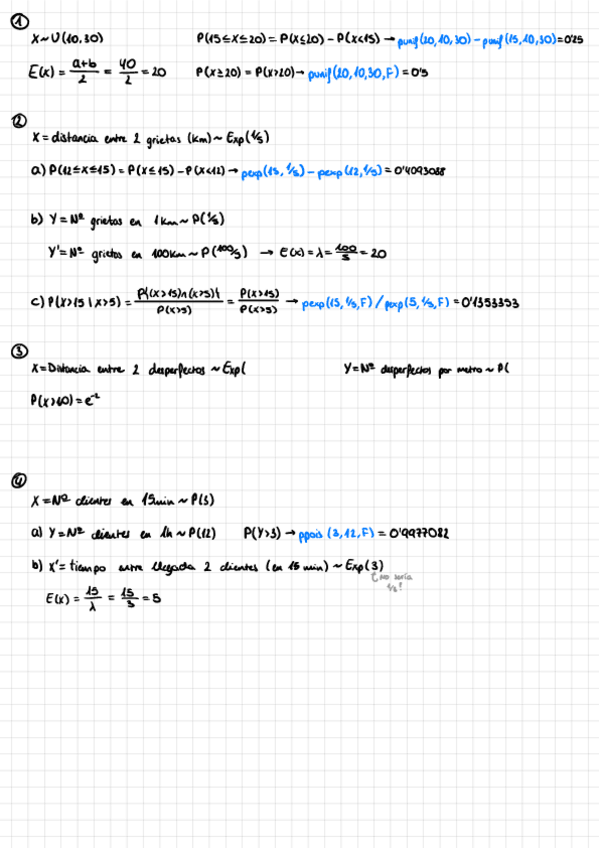 ①
X ~ U(10,30)    P(15≤X≤20) = P(X≤20) - P(X<15) → punif(20,10,30) - punif(15,10,30) = 0'25
E(X) = a+b/2 = 40/2 = 20    P(X≥20) = P(X>20) → punif(20,10,30,F) = 0'5
②
X = distancia entre 2 grietas (km) ~ Exp(1/5)
a) P(12≤X≤15) = P(X≤15) - P(X<12) → pexp(15, 1/5) - pexp(12, 1/5) = 0'4093088
b) Y = Nº grietas en 1km ~ P(1/5)
Y' = Nº grietas en 100km ~ P(100/5) → E(X) = λ = 100/5 = 20
c) P(X>15 | X>5) = P{(X>15)∩(X>5)}/P(X>5) = P(X>15)/P(X>5) → pexp(15, 1/5, F) / pexp(5, 1/5, F) = 0'1353353
③
X = Distancia entre 2 desperfectos ~ Exp(    Y = Nº desperfectos por metro ~ P(
P(X>10) = e⁻²
④
X = Nº clientes en 15min ~ P(3)
a) Y = Nº clientes en 1h ~ P(12)    P(Y>3) → ppois (3,12,F) = 0'9977082
b) X' = tiempo entre llegada 2 clientes (en 15 min) ~ Exp(3)
¿no sería
1/3?
E(X) = 15/λ = 15/3 = 5